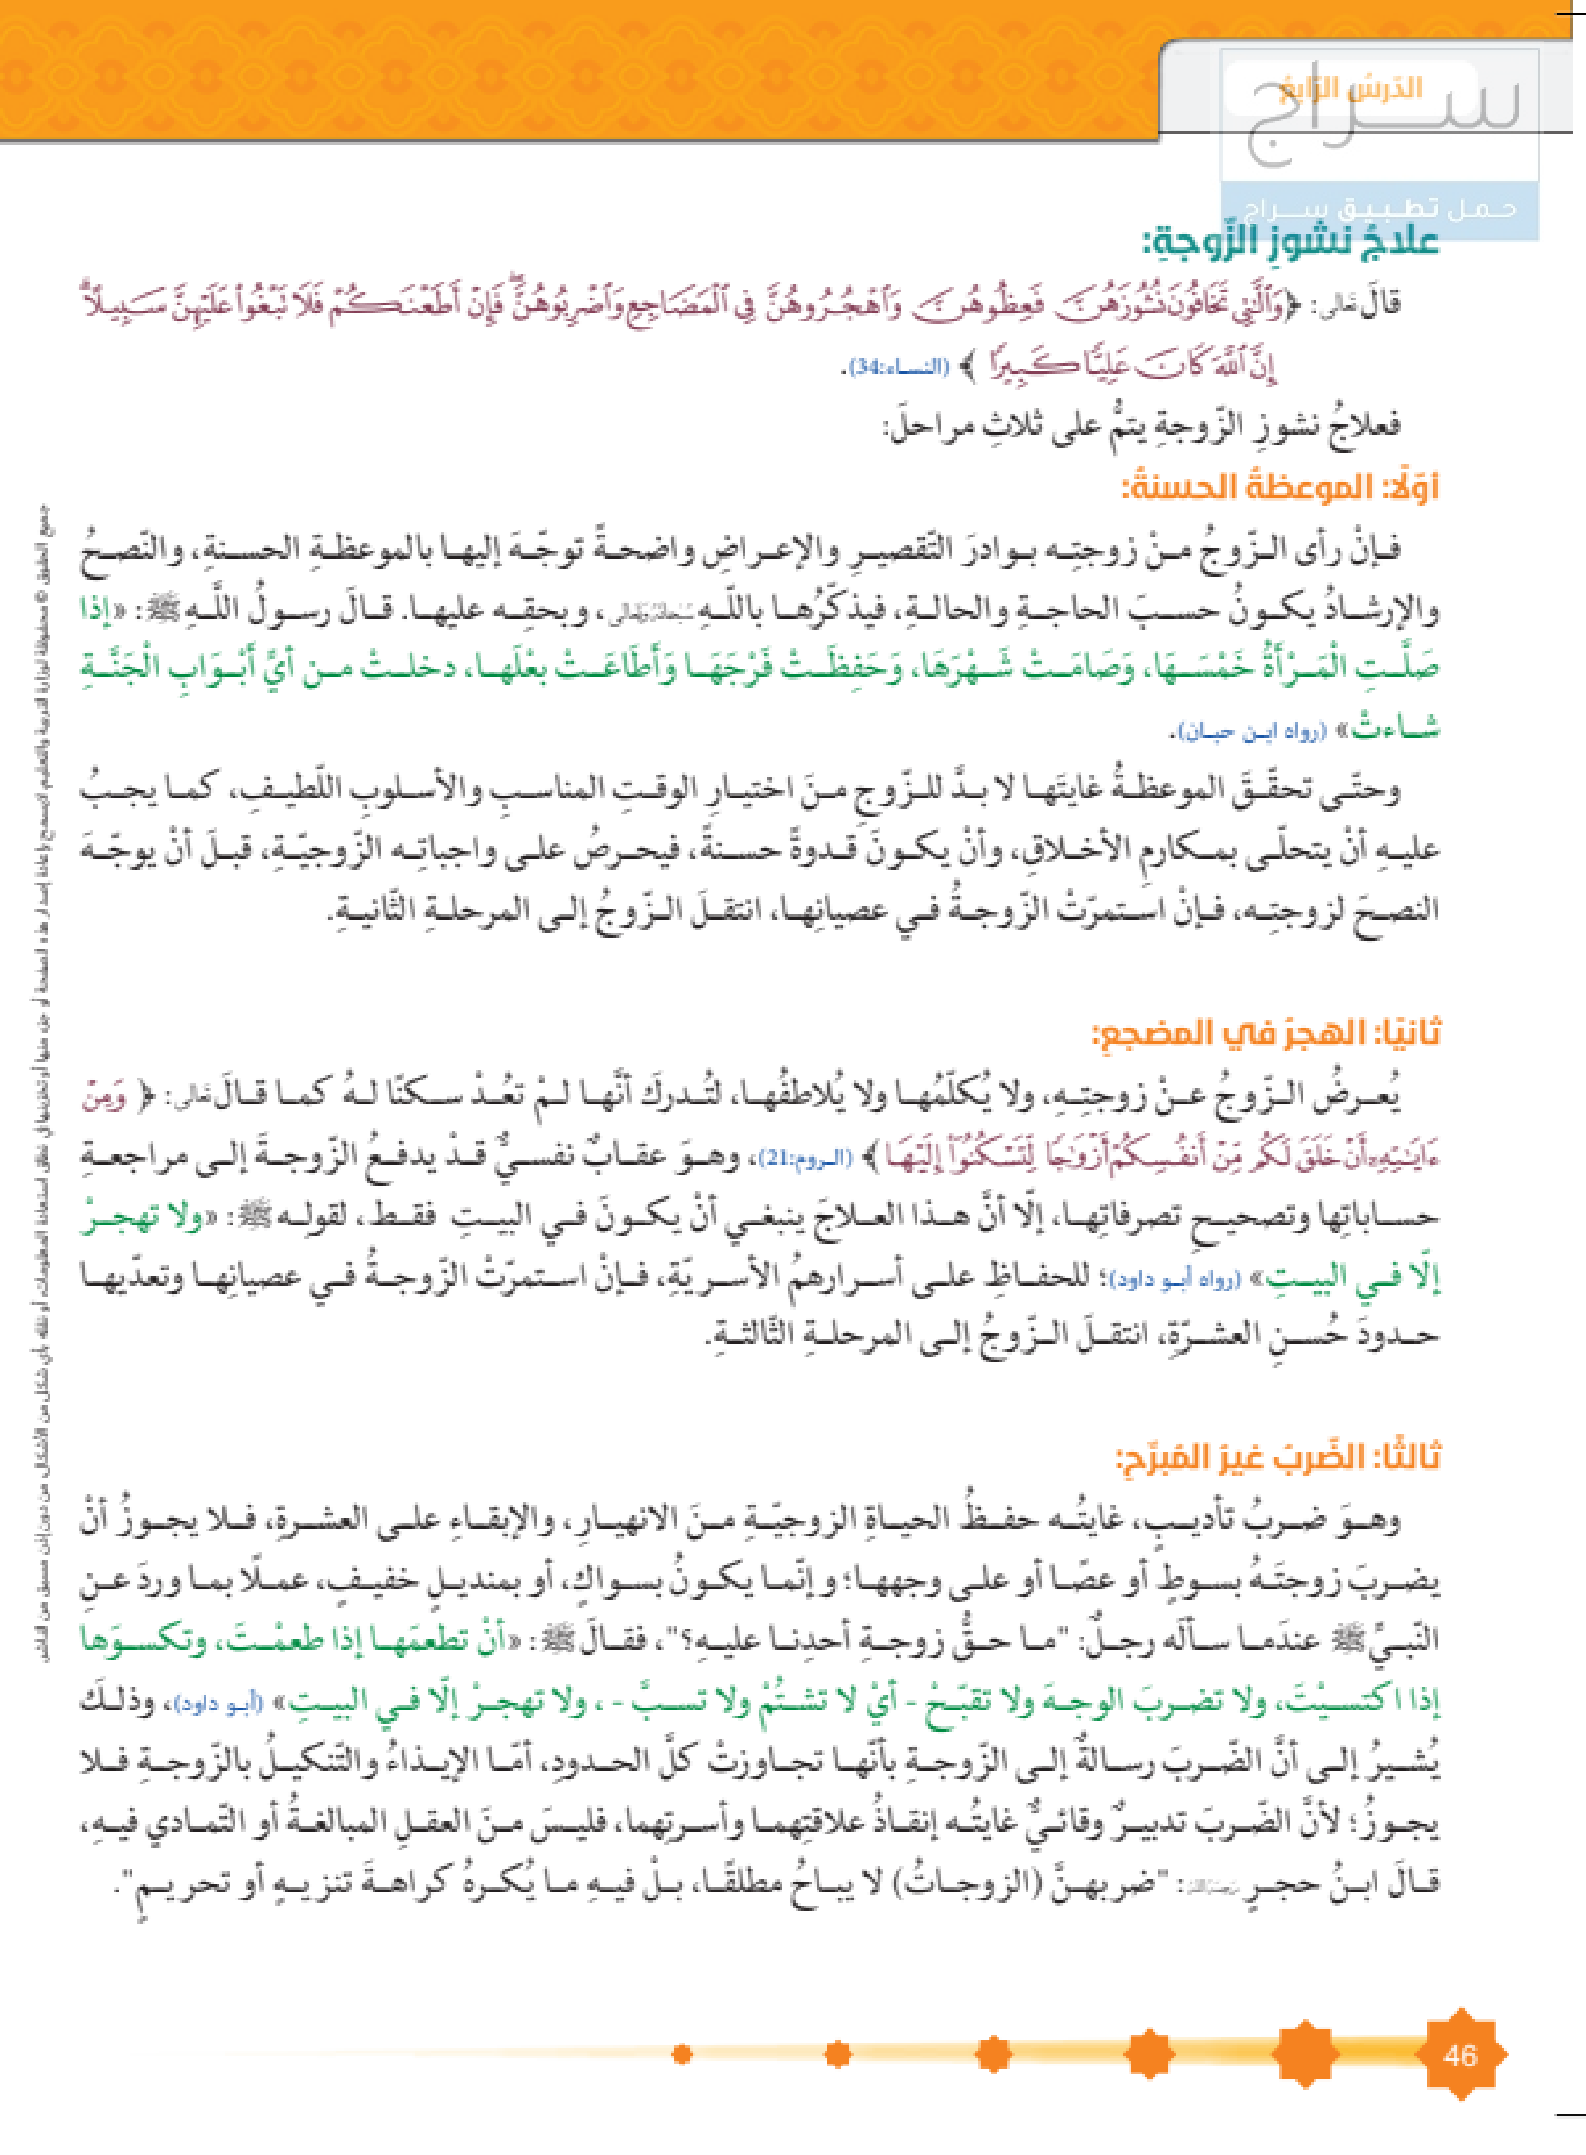 الدّرسُ الرّابعُ
سراج
حمل تطبيق سراج
علاجُ نشوزِ الزّوجةِ:
قالَ تعالى: ﴿وَٱلَّٰتِي تَخَافُونَ نُشُوزَهُنَّ فَعِظُوهُنَّ وَٱهْجُرُوهُنَّ فِي ٱلْمَضَاجِعِ وَٱضْرِبُوهُنَّۖ فَإِنْ أَطَعْنَكُمْ فَلَا تَبْغُوا۟ عَلَيْهِنَّ سَبِيلًاۗ
إِنَّ ٱللَّهَ كَانَ عَلِيًّا كَبِيرًا﴾ (النساء:34).
فعلاجُ نشوزِ الزّوجةِ يتمُّ على ثلاثِ مراحلَ:
أوّلًا: الموعظةُ الحسنةُ:
فإنْ رأى الزّوجُ منْ زوجتِه بوادرَ التّقصيرِ والإعراضِ واضحةً توجّهَ إليها بالموعظةِ الحسنةِ، والنّصحُ
والإرشادُ يكونُ حسبَ الحاجةِ والحالةِ، فيذكّرُها باللّهِ سبحانه وتعالى، وبحقِه عليها. قالَ رسولُ اللّهِ ﷺ: «إذا
صَلَّتِ الْمَرْأَةُ خَمْسَهَا، وَصَامَتْ شَهْرَهَا، وَحَفِظَتْ فَرْجَهَا وَأَطَاعَتْ بعْلَها، دخلتْ من أيِّ أَبْوَابِ الْجَنَّةِ
شاءتْ» (رواه ابن حبان).
وحتّى تحقّقَ الموعظةُ غايتَها لا بدَّ للزّوجِ منَ اختيارِ الوقتِ المناسبِ والأسلوبِ اللّطيفِ، كما يجبُ
عليهِ أنْ يتحلّى بمكارمِ الأخلاقِ، وأنْ يكونَ قدوةً حسنةً، فيحرصُ على واجباتِه الزّوجيّةِ، قبلَ أنْ يوجّهَ
النصحَ لزوجتِه، فإنْ استمرّتْ الزّوجةُ في عصيانِها، انتقلَ الزّوجُ إلى المرحلةِ الثّانيةِ.
ثانيًا: الهجرُ في المضجعِ:
يُعرضُ الزّوجُ عنْ زوجتِهِ، ولا يُكلّمُها ولا يُلاطفُها، لتُدركَ أنَّها لمْ تعُدْ سكنًا لهُ كما قالَ تعالى: ﴿وَمِنْ
ءَايَٰتِهِۦ أَنْ خَلَقَ لَكُم مِّنْ أَنفُسِكُمْ أَزْوَٰجًا لِّتَسْكُنُوٓا۟ إِلَيْهَا﴾ (الروم:21)، وهوَ عقابٌ نفسيٌّ قدْ يدفعُ الزّوجةَ إلى مراجعةِ
حساباتِها وتصحيحِ تصرفاتِها، إلّا أنَّ هذا العلاجَ ينبغي أنْ يكونَ في البيتِ فقط، لقولِه ﷺ: «ولا تهجرْ
إلّا في البيتِ» (رواه أبو داود)؛ للحفاظِ على أسرارهمُ الأسريّةِ، فإنْ استمرّتْ الزّوجةُ في عصيانِها وتعدّيها
حدودَ حُسنِ العشرّةِ، انتقلَ الزّوجُ إلى المرحلةِ الثّالثةِ.
ثالثًا: الضّربُ غيرُ المُبرّحِ:
وهوَ ضربُ تأديبٍ، غايتُه حفظُ الحياةِ الزوجيّةِ منَ الانهيارِ، والإبقاءِ على العشرةِ، فلا يجوزُ أنْ
يضربَ زوجتَهُ بسوطٍ أو عصًا أو على وجهِها؛ وإنّما يكونُ بسواكٍ، أو بمنديلٍ خفيفٍ، عملًا بما وردَ عنِ
النّبيِّ ﷺ عندَما سألَه رجلٌ: "ما حقُّ زوجةِ أحدِنا عليهِ؟"، فقالَ ﷺ: «أنْ تطعمَها إذا طعمْتَ، وتكسوَها
إذا اكتسيْتَ، ولا تضربَ الوجهَ ولا تقبّحْ - أيْ لا تشتُمْ ولا تسبَّ - ، ولا تهجرْ إلّا في البيتِ» (أبو داود)، وذلكَ
يُشيرُ إلى أنَّ الضّربَ رسالةٌ إلى الزّوجةِ بأنّها تجاوزتْ كلَّ الحدودِ، أمّا الإيذاءُ والتّنكيلُ بالزّوجةِ فلا
يجوزُ؛ لأنَّ الضّربَ تدبيرٌ وقائيٌّ غايتُه إنقاذُ علاقتِهما وأسرتِهما، فليسَ منَ العقلِ المبالغةُ أو التّمادي فيهِ،
قالَ ابنُ حجرٍ رحمه الله: "ضربهنَّ (الزوجاتُ) لا يباحُ مطلقًا، بلْ فيهِ ما يُكرهُ كراهةَ تنزيهٍ أو تحريمٍ".
46
جميع الحقوق © محفوظة لوزارة التربية والتعليم. لا يسمح بإعادة إصدار هذه الصفحة أو جزء منها أو تخزينها في نطاق استعادة المعلومات، أو نقله بأي شكل من الأشكال، من دون إذن مسبق من الناشر.